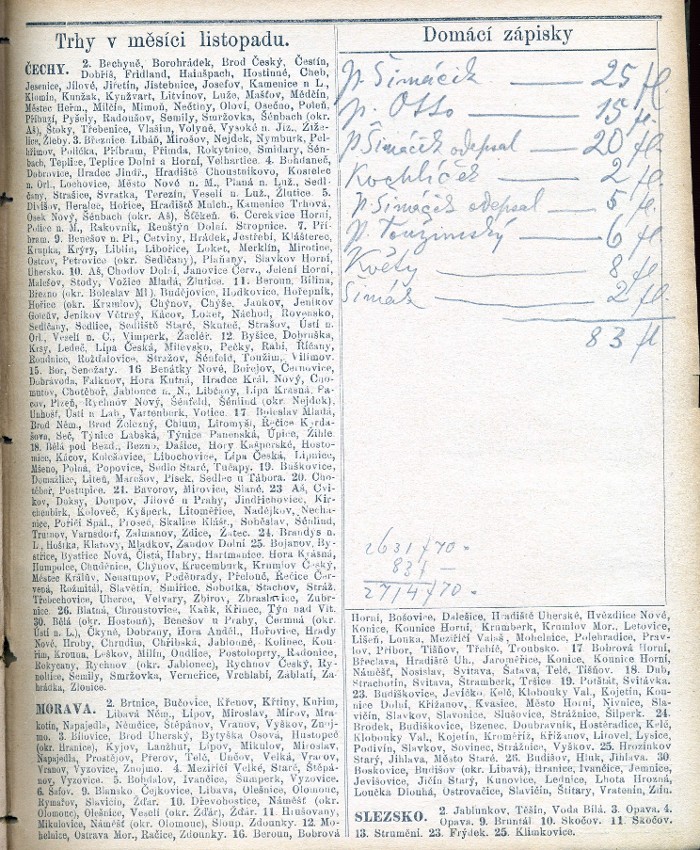 Trhy v měsíci listopadu.
ČECHY. 2. Bechyně, Borohrádek, Brod Český, Čestín,
Dobříš, Fridland, Haišpach, Hostinné, Cheb,
Jesenice, Jílové, Jiřetín, Jistebnice, Josefov, Kamenice n L.,
Klomín, Kunžak, Kynžvart, Litvínov, Luže, Mašťov, Mělčín,
Městec Heřm., Milčín, Mimoň, Nečtiny, Oloví, Osečno, Poleň,
Příbuzí, Pyšely, Radoušov, Semily, Smržovka, Šénbach (okr.
Aš), Štoky, Třebenice, Vlašim, Volyně, Vysoké n Jiz., Žiže-
lice, Žleby. 3. Březnice Libáň, Mirošov, Nejdek, Nymburk, Pel-
hřimov, Polička, Příbram, Přimda, Rokytnice, Smidary, Šén-
bach, Teplice, Teplice Dolní a Horní, Velhartice. 4. Bohdaneč,
Dobrovice, Hradec Jindř., Hradiště Choustníkovo, Kostelec
n Orl., Lochovice, Město Nové n M., Planá n Luž., Sedl-
čany, Strašice, Svratka, Terezín, Veselí n Luž., Žlutice. 5.
Divišov, Heralec, Hořice, Hradiště Mnich., Kamenice Trhová,
Osek Nový, Šénbach (okr. Aš), Štěkeň. 6. Cerekvice Horní,
Police n M., Rakovník, Renštýn Dolní, Stropnice. 7. Pří-
bram. 9. Benešov n. Pl., Cetviny, Hrádek, Jestřebí, Klášterec,
Krupka, Krýry, Liblín, Libořice, Loket, Merklín, Mirotice,
Ostrov, Petrovice (okr. Sedlčany), Plaňany, Slavkov Horní,
Uhersko. 10. Aš, Chodov Dolní, Janovice Červ., Jelení Horní,
Malešov, Stody, Vožice Mladá, Žlutice. 11. Beroun, Bílina,
Březno (okr. Boleslav Ml.) Budějovice, Hodkovice, Hořepník,
Hořice (okr. Krumlov), Chýnov, Chýše, Jankov, Jeníkov
Golčův, Jeníkov Větrný, Kácov, Loket, Náchod, Rovensko,
Sedlčany, Sedlice, Sedliště Staré, Skuteč, Strašov, Ústí n.
Orl., Veselí n. C., Vimperk, Žacléř. 12. Byšice, Dobruška,
Krsy, Ledeč, Lípa Česká, Milevsko, Pečky, Rabí, Říčany,
Roudnice, Rožďalovice, Stražov, Šénfeld, Toužim, Vilímov.
15. Bor, Senožaty. 16 Benátky Nové, Bořejov, Černovice,
Dobrávoda, Falknov, Hora Kutná, Hradec Král. Nový, Cho-
mutov, Chotěboř, Jablonec n. N., Libčany, Lípa Krásná, Pa-
cov, Plzeň, Rychnov Nový, Šénfeld, Šénlind (okr. Nejdek),
Unhošť, Ústí n Lab., Vartenberk, Votice. 17. Boleslav Mladá,
Brod Něm., Brod Železný, Chlum, Liromyšl, Řečice Karda-
šova, Seč, Týnice Labská, Týnice Panenská, Úpice, Žihle
18. Bělá pod Bezd., Bezno, Dašice, Hory Kašperské, Hosto-
mice, Kácov, Kolešovice, Libochovice, Lípa Česká, Lipnice,
Mšeno, Polná, Popovice, Sedlo Staré, Tučapy. 19. Buškovice,
Domažlice, Liteň, Maršov, Písek, Sedlec u Tábora. 20. Cho-
těboř, Postupice. 21. Bavorov, Mirovice, Slané. 23 Aš, Cvi-
kov, Doksy, Doupov, Jílové u Prahy, Jindřichovice, Kir-
chenbirk, Koloveč, Kyšperk, Litoměřice, Nadějkov, Necha-
nice, Poříčí Spál., Proseč, Skalice Klášt., Soběslav, Šénlind,
Trutnov, Varnsdorf, Zalmanov, Zdice, Žatec. 24. Brandýs n
L., Hoštka, Klatovy, Mladkov, Zandov Dolní 25. Bojanov, By-
střice, Bystřice Nová, Čistá, Habry, Hartmanice, Hora Krásná,
Humpolec, Chuděnice, Chýnov, Krucemburk, Krumlov Český,
Městec Králův, Neustupov, Poděbrady, Přelouč, Řečice Čer-
vená, Rožmitál, Slavětín, Smiřice, Sobotka, Stachov, Stráž,
Třebechovice, Uherce, Velvary, Zbirov, Zbraslavice, Zubr-
nice. 26. Blatná, Chroustovice, Kaňk, Křinec, Týn nad Vlt.
30. Bělá (okr. Hostouň), Benešov u Prahy, Čermná (okr.
Ústí n L.), Čkyně, Dobrany, Hora Anděl., Hořovice, Hrady
Nové, Hroby, Chrudim, Chříbská, Jablonné, Kolinec, Kou-
řim, Krouna, Leskov, Milín, Ondlice, Postoloprty, Radonice,
Rokycany, Rychnov (okr. Jablonec), Rychnov Český, Ry-
noltice, Semily, Smržovka, Verneřice, Vrchlabí, Záblatí, Za-
hrádka, Zlonice.
MORAVA. 2. Brtnice, Bučovice, Křenov, Křtiny, Kuřim,
Libavá Něm., Lipov, Miroslav, Mírov, Mra-
kotín, Napajedla, Němčice, Štěpánov, Vranov, Vyškov, Znoj-
mo. 3. Bílovice, Brod Uherský, Bytyška Osová, Hustopeč
(okr. Hranice), Kyjov, Lanžhut, Lipov, Mikulov, Miroslav,
Napajedla, Prostějov, Přerov, Telč, Uničov, Velká, Vranov,
Vranov, Vyzovice, Znojmo. 4. Meziříčí Velké, Staré, Štěpá-
nov, Vyzovice. 5. Bohdalov, Ivančice, Šumperk, Vyzovice.
6. Šafov. 9. Blansko, Čejkovice, Libava, Olešnice, Olomouc,
Rymařov, Slavičín, Žďár. 10. Dřevohostice, Náměšť (okr.
Olomouc), Olešnice, Veselí (okr. Žďár), Žďár. 11. Hrušovany,
Mikulovice, Náměšť (okr. Olomouc), Sloup, Zdounky. 12. Mo-
helnice, Ostrava Mor., Račice, Zdounky. 16. Beroun, Bobrová
Domácí zápisky
p. Šimáček — 25 fl
p. Otto — 15 fl.
p Šimáček odepsal — 20 fl
Kochlíček — 2 fl
p Šimáček odepsal — 5 fl.
p. Toužimský — 6 fl.
Květy — 8 fl
Šimák — 2 fl.
83 fl
2631 f 70 ·
83 f —
2714 f 70 ·
Horní, Bošovice, Dalešice, Hradiště Uherské, Hvězdlice Nové,
Konice, Kounice Horní, Kramberk, Kromlov Mor., Letovice,
Lišeň, Louka, Meziříčí Valaš., Mohelnice, Polehradice, Prav-
lov, Příbor, Tišňov, Třebíč, Troubsko. 17 Bobrová Horní,
Břeclava, Hradiště Uh., Jaroměřice, Konice, Kounice Horní,
Náměšť, Nosislav, Svitava, Šatava, Telč, Tišňov. 18. Dub,
Strachotín, Svitava, Štramberk, Tršice 19. Potštát, Svitávka.
23. Budíškovice, Jevíčko, Kelč, Klobouky Val., Kojetín, Kou-
nice Dolní Křižanov, Kvasice, Město Horní, Nivnice, Sla-
vičín, Slavkov, Slavonice, Slušovice, Strážnice, Šilperk. 24.
Brodek, Budíškovice, Bzenec, Doubravník, Hostěradice, Kelč,
Klobouky Val., Kojetín, Kroměříž, Křižanov, Litovel, Lysice,
Podivín, Slavkov, Sovinec, Strážnice, Vyškov. 25. Hrozinkov
Starý, Jihlava, Město Staré. 26. Budišov, Hluk, Jihlava. 30.
Boskovice, Budišov (okr. Libavá), Hranice, Ivančice, Jemnice,
Jevišovice, Jičín Starý, Kunovice, Lednice, Lhota Hrozná,
Loučka Dlouhá, Ostrovačice, Slavičín, Štítary, Vratenín, Zdu.
SLEZSKO. 2. Jablunkov, Těšín, Voda Bílá. 3. Opava. 4.
Opava. 9. Bruntál 10. Skočov. 11. Skočov.
13. Strumění. 23. Frýdek. 25. Klimkovice.